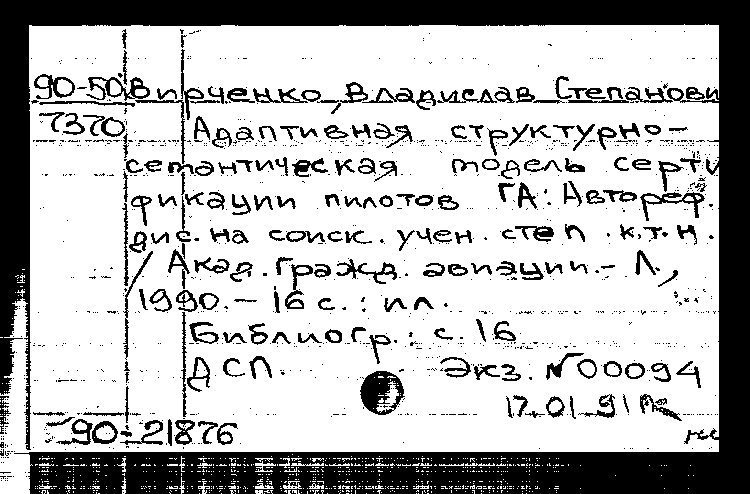 90-50 Вирченко, Владислав Степанови
7370 Адаптивная структурно-
семантическая модель серти
фикации пилотов ГА: Автореф.
дис. на соиск. учен. степ. к.т.н.
/ Акад. гражд. авиации. - Л.,
1990. - 16 с. : ил.
Библиогр.: с. 16
ДСП. Экз. №00094
17.01.91
90-21876